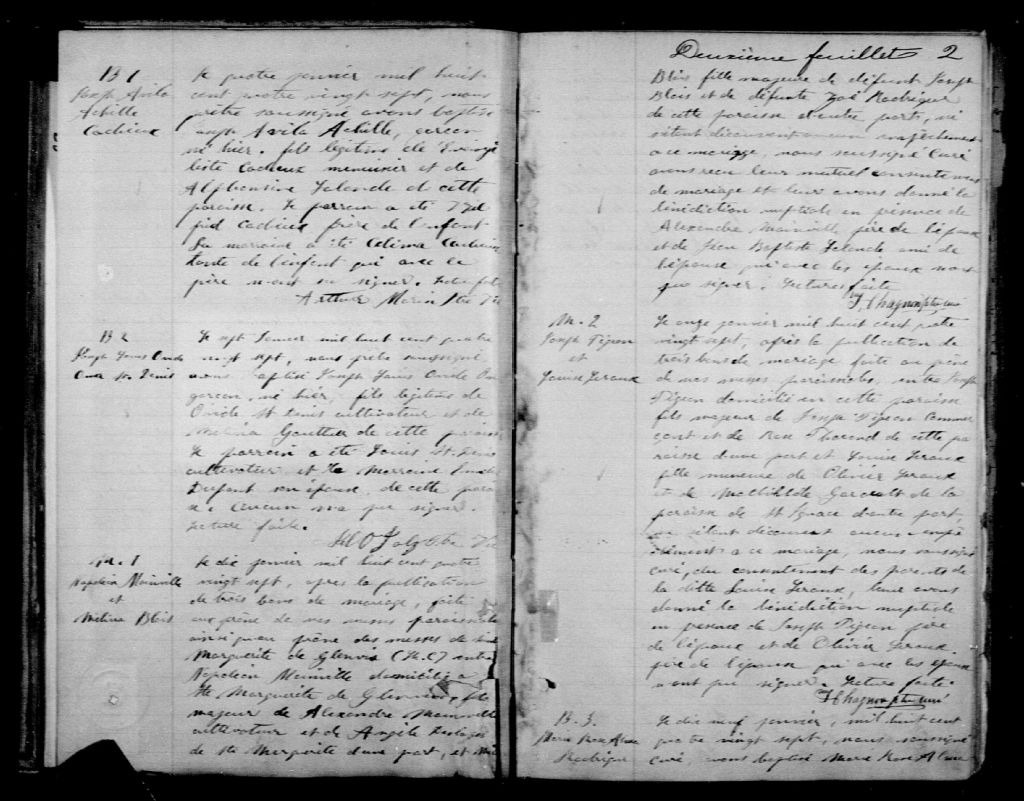 B 1
Joseph Avila
Achille
Cadieux
Le quatre janvier mil huit
cent quatre vingt sept, nous
prêtre soussigné avons baptisé
Joseph Avila Achille, garcon
né hier, fils légitime de Evangé
liste Cadieux menuisier et de
Alphonsine Lalande de cette
paroisse. Le parrain a été
Cadieux frère de l'enfant
La marraine a été Célima Cadieux
tante de l'enfant qui avec le
père n'ont su signer. Lecture faite
Arthur Morin Ptre
B 2
Joseph Louis Ovide
St. Denis
Le sept Janvier mil huit cent quatre
vingt sept, nous prêtre soussigné
avons baptisé Joseph Louis Ovide
garcon, né hier, fils légitime de
Ovide St Denis cultivateur et de
Mélina Gauthier de cette paroisse
Le parrain a été Louis St. Denis
cultivateur et la Marraine
son épouse de cette paroisse
Aucun n'a pu signer.
Lecture faite.
M. 1
Napoléon Mainville
et
Mélina Blais
Le dix janvier mil huit cent quatre
vingt sept, après la publication
de trois bans de mariage, faite
au prône de nos messes paroissiales
ainsi qu'au prône des messes de
Marguerite de Glenvis (H.C) entre
Napoléon Mainville domicilié à
Ste Marguerite de fils
majeur de Alexandre Mainville
cultivateur et de Angèle
de Ste Marguerite d'une part, et
Deuxième feuillet 2
Blais fille majeure de défunt Joseph
Blais et de défunte Zoé Rodrigue
de cette paroisse d'autre part, ne
s'étant découvert aucun empêchement
à ce mariage, nous soussigné Curé
avons recu leur mutuel consentement
de mariage et leur avons donné la
bénédiction nuptiale en présence de
Alexandre Mainville père de l'époux
et de Jean Baptiste Lalande ami de
l'épouse qui avec les époux n'ont
pu signer. Lecture faite
F. Chagnon ptre curé
M. 2
Joseph Pigeon
et
Louise Leroux
Le onze janvier mil huit cent quatre
vingt sept, après la publication de
trois bans de mariage faite au prône
de nos messes paroissiales, entre Joseph
Pigeon domicilié en cette paroisse
fils majeur de Joseph Pigeon Commer
çant et de Rose de cette pa
roisse d'une part et Louise Leroux
fille mineure de Olivier Leroux
et de Mathilde de la
paroisse de St Ignace d'autre part,
ne s'étant découvert aucun empê
chement à ce mariage, nous soussigné
curé, du consentement des parents de
la dite Louise Leroux, leur avons
donné la bénédiction nuptiale
en présence de Joseph Pigeon père
de l'époux et de Olivier Leroux
père de l'épouse qui avec les époux
n'ont pu signer. Lecture faite.
F. Chagnon ptre curé
B. 3.
Marie Rose Alma
Rodrigue
Le dix neuf janvier, mil huit cent
quatre vingt sept, nous soussigné
curé, avons baptisé Marie Rose Alma